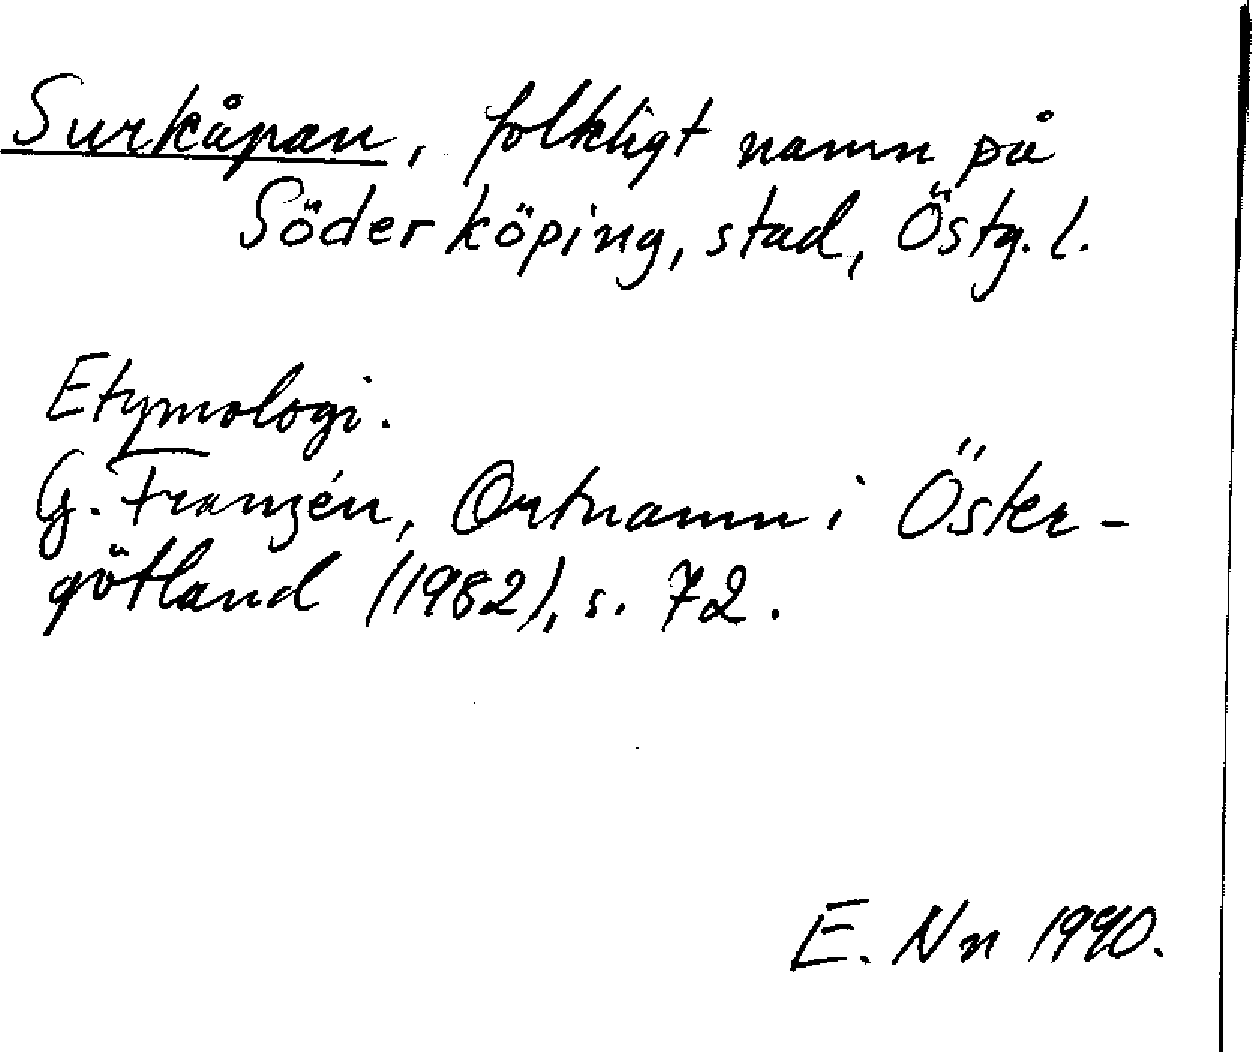 Surkåpan, folkligt namn på
Söderköping, stad, Östg. l.
Etymologi.
G. Franzén, Ortnamn i Öster-
götland (1982), s. 72.
E. Nn 1990.